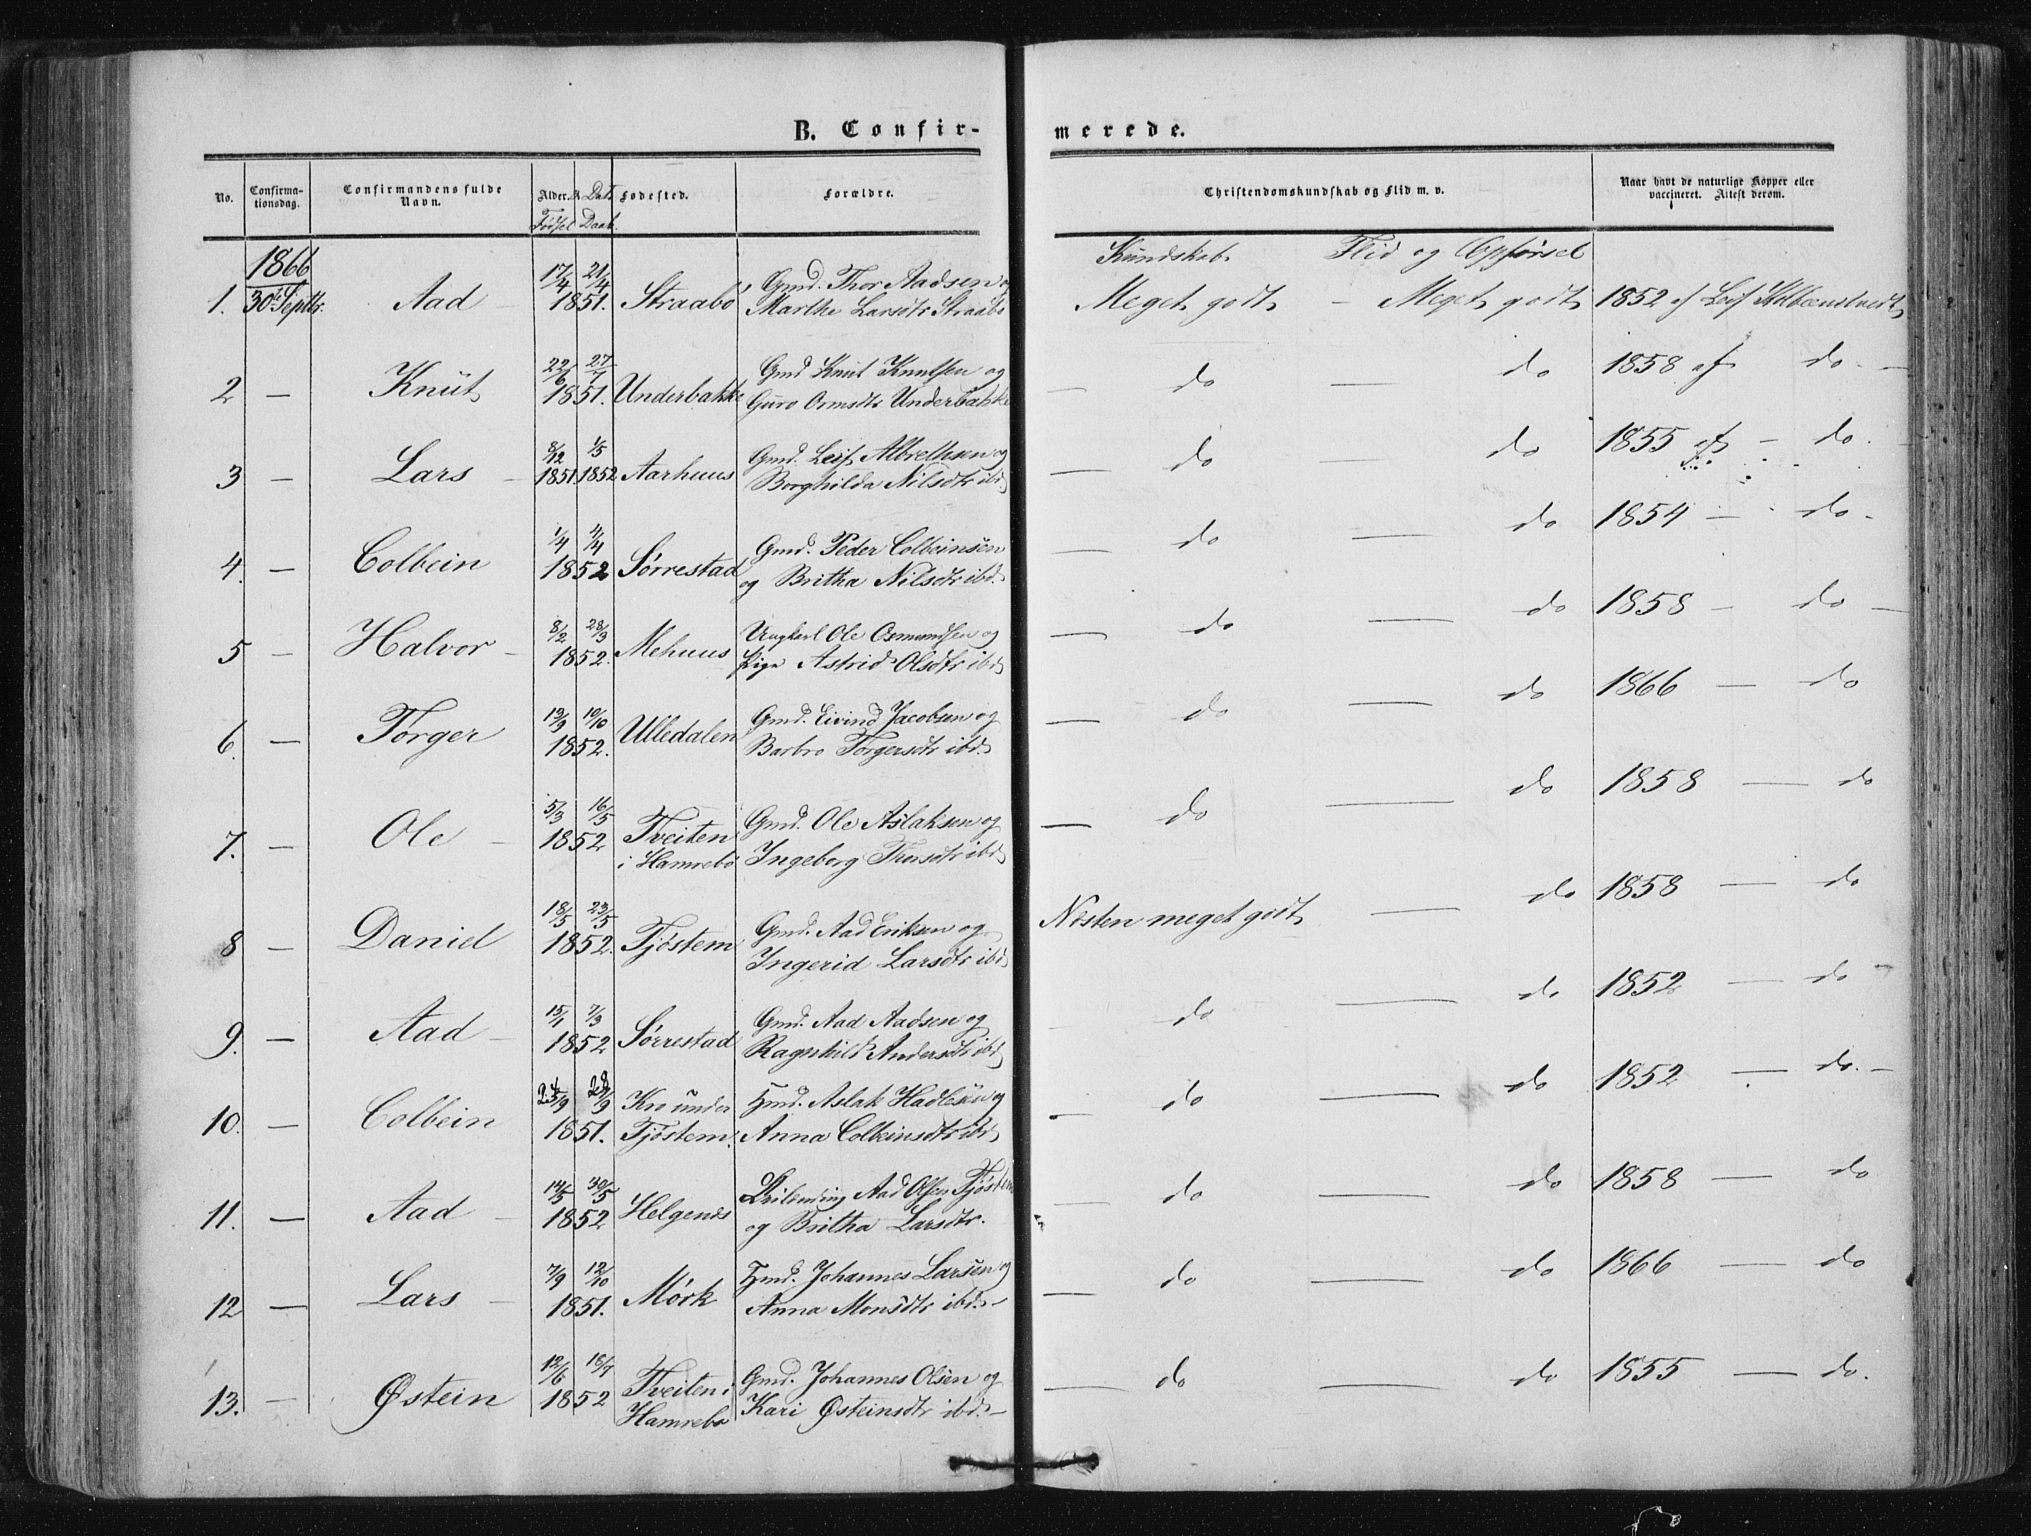 B. Confir-
merede.
No. Confirma-tionsdag. Confirmandens fulde Navn. Alder. & Dat. Fødested. Forældre.
Fødsel Daab.
Christendomskundskab og Flid m. v. Naar havt de naturlige Kopper eller vaccineret. Attest derom.
Kundskab Flid og Opførsel
1866
1. 30te Septbr. Aad 17/4 21/4 1851. Straabø Gmd. Thor Aadsen og
Marthe Larsdtr Straabø
Meget godt - Meget godt 1852 af Leif
2 - Knut 22/6 27/7 1851. Underbakke Gmd Knut Knutsen og
Guro Ormsdtr Underbakke
- do - do 1858 af do -
3 - Lars 8/12 1/5 1851. 1852 Aarhuus Gmd. Leif Albrethsen og
Borghilda Nilsdtr ibd
- do - do 1855 af - do -
4. - Colbein 1/4 4/4 1852 Sørrestad Gmd. Peder Colbeinsen
og Britha Nilsdtr ibd.
- do - do 1854 - do -
5 - Halvor 8/2 28/3 1852. Mehuus Ungkarl Ole Osmundsen og
Pige Astrid Olsdtr ibd
- do - do 1858 - do -
6. - Torger 19/9 10/10 1852. Ulledalen Gmd. Eivind Jacobsen og
Barbro Torgersdtr ibd.
- do - do 1866 - do
7. - Ole 5/3 16/5 1852 Tveiten
i Hamrebø
Gmd. Ole Aslaksen og
Ingeborg Truisdtr ibd
- do - do 1858 - do
8 - Daniel 18/5 23/5 1852. Tjøstem Gmd. Aad Eriksen og
Ingerid Larsdtr ibd
Næsten meget godt - do 1858 - do
9. - Aad 15/1 7/3 1852 Sørrestad Gmd. Aad Aadsen og
Ragnhild Andersdtr ibd
do - do 1852 - do -
10. - Colbein 28/9 1851. Kro under
Tjøstem.
Hmd. Aslak Hadlesen og
Anna Colbeinsdtr ibd
- do - do 1852 - do. -
11. - Aad 14/5 30/5 1852 Helgenes Aad Olsen Tjøstem
og Britha Larsdtr.
- do - do 1858 - do
12 - Lars 7/9 12/10 1851. Mørk Hmd. Johannes Larsen og
Anna Monsdtr ibd. -
- do - do 1866 - do
13. - Østein 12/6 18/7 1852 Tveiten i
Hamrebø
Gmd. Johannes Olsen og
Kari Østeinsdtr ibd. -
- do - do 1855 - do.